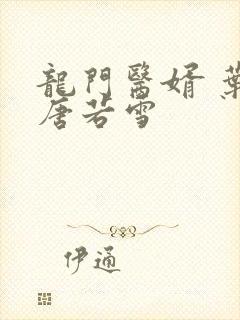 龍門醫婿 葉
唐若雪
伊通